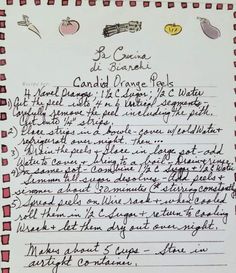 La Cucina
di Bianchi
Candid Orange Peels
4 Navel Orange, 1½ C Sugar, ½ C Water
1) Cut the peel into 4 or 6 vertical segments,
Carefully remove the peel including the pith,
Cut into ¼" strips.
2) Place strips in a bowl - cover w/ cold water +
refrigerate over night, then...
3) Drain the peels + Place in large pot - add
Water to cover + bring to a boil, Drain + rinse
4) In same pot - combine ½ C Sugar + ½ C Water
simmer till sugar desolves - Add peels +
simmer about 30 minute (stirring constantly)
5) Spread peels on Wire rack + when cooled
roll them in ½ C Sugar + return to cooling
Wrack + let them dry out over night.
Makes about 5 cups - Store in
airtight container.